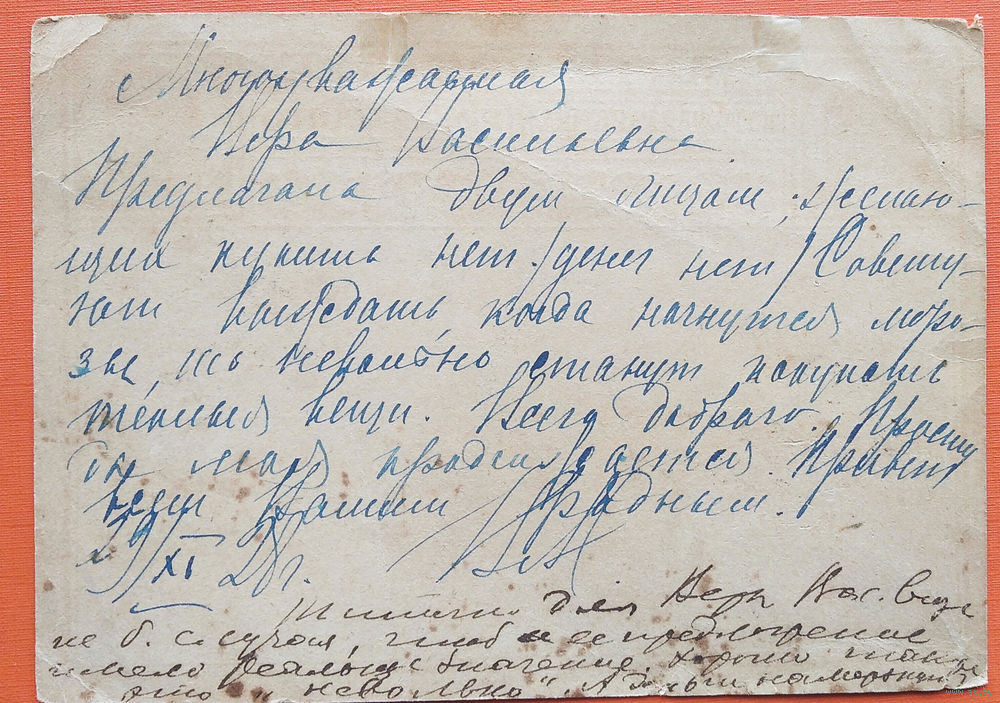 Многоуважаемая
Вера Васильевна
Предлагала двум лицам, желаю-
щих купить нет /денег нет/ Совету-
ют выждать, когда начнутся моро-
зы, то невольно станут покупать
теплыя вещи. Всего доброго. Простуда
моя продолжается. Привет
всем Вашим родным.
XI 28 г.
для Веры Вас. еще
не б. случая, чтоб ее предложение
имело реальное значение. Хорошо также
это "невольно". А